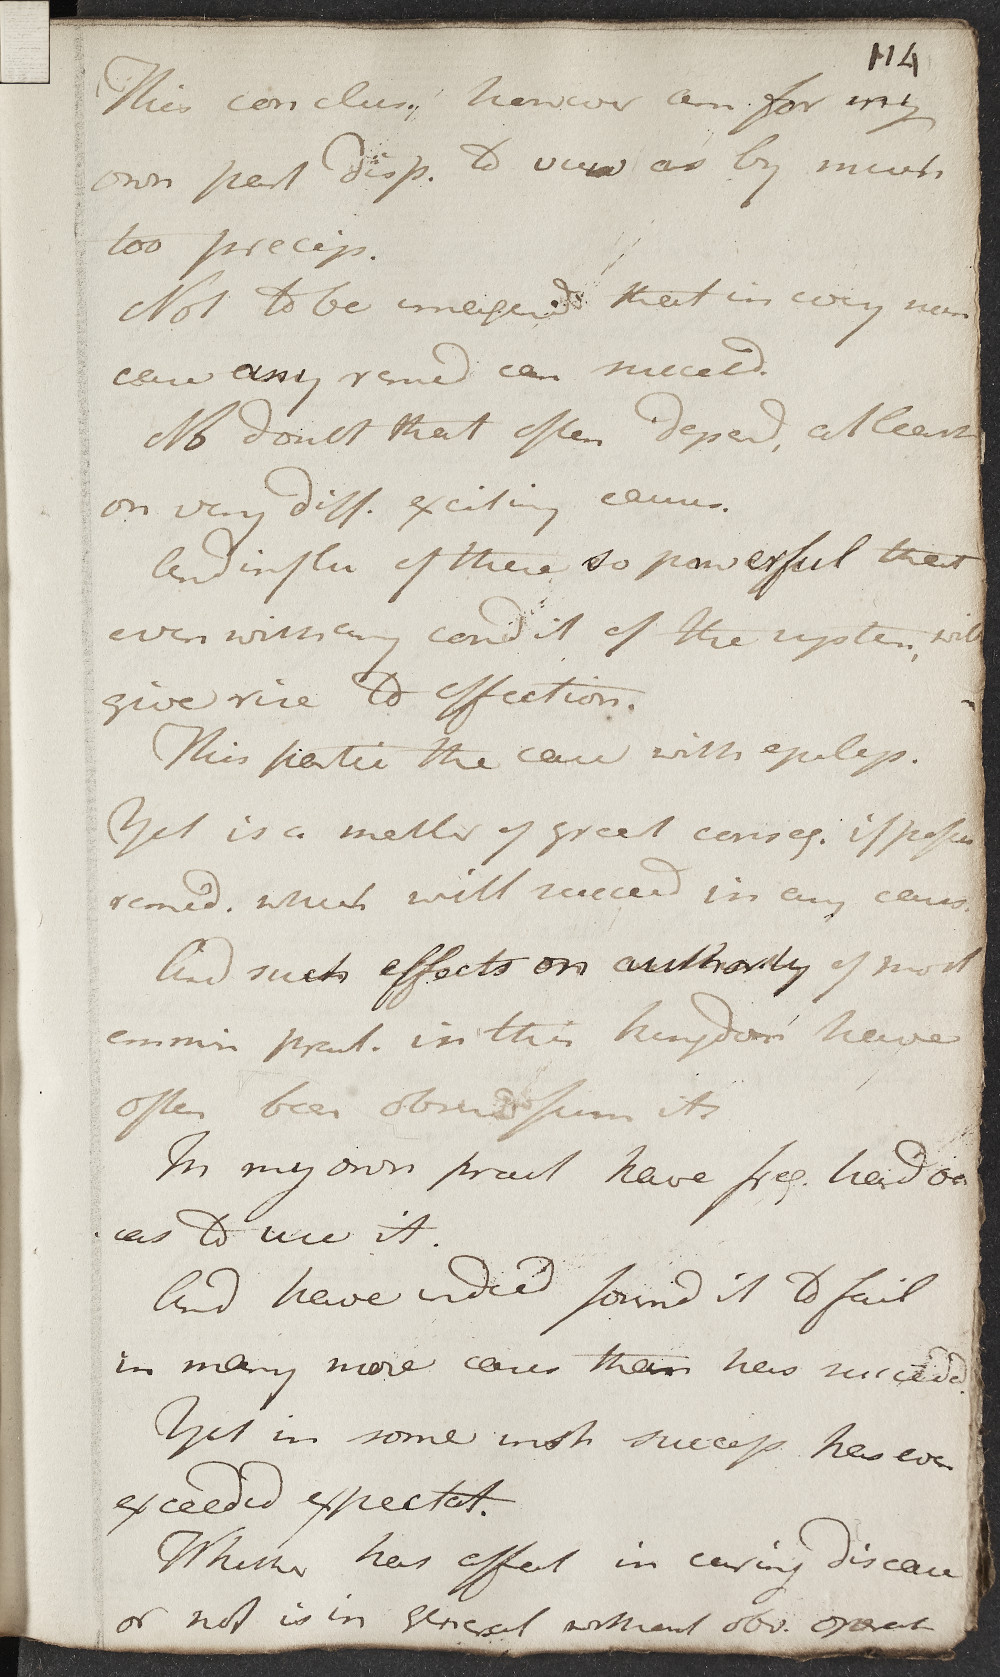 114
This conclus., however am for my
own part disp. to view as by much
too precip.
Not to be imagend that in every
case any remed can succeed.
No doubt that often depend, at least
on very diff. exciting causes.
And influ of these so powerful that
even with any condit of the system, will
give rise to affection.
This partic the case with epilep.
Yet is a matter of great conseq. if posses
remed. which will succeed in any cases.
And such effects on authority of most
eminin pract. in this kingdom have
often been obsered from it
In my own pract have freq. had oc
cas to use it.
And have indeed found it to fail
in many more cases than has succeeded.
Yet in some inst success has even
exceeded expectat.
Whether has effect in curing disease
or not is in general without obv. operat